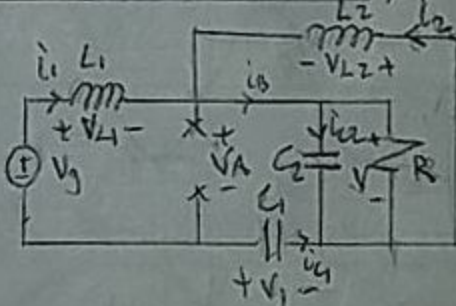 L2 i2
- VL2 +
i1 L1 iB
+ VL1 -
Vg
+ VA -
C2 iC2 + V - R
C1 iC1
+ V1 -